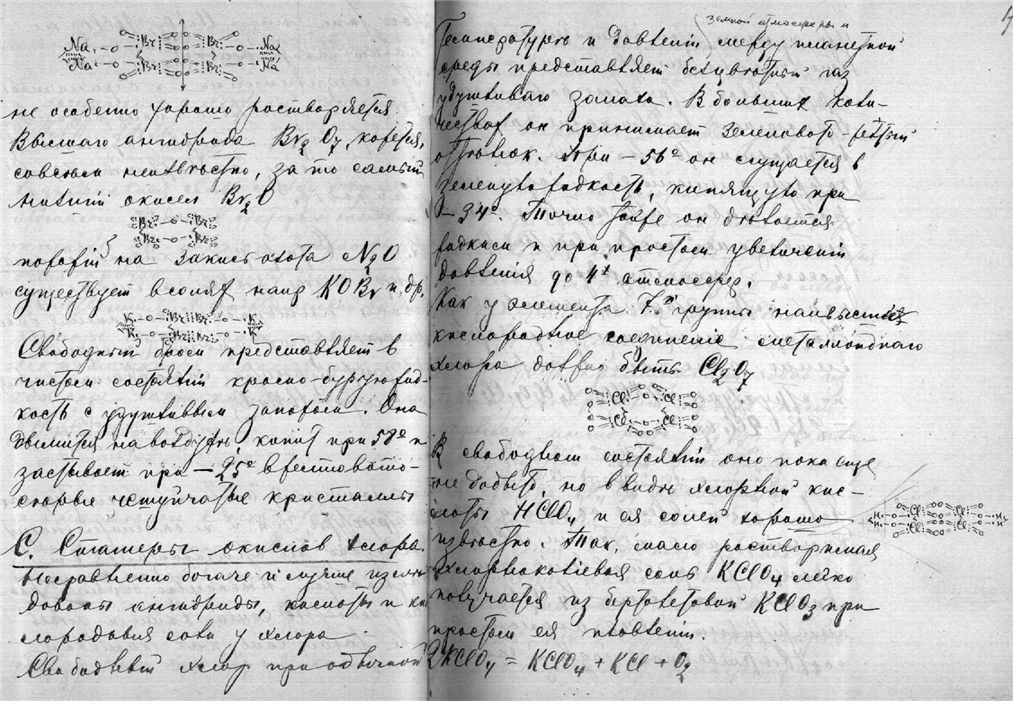 Na Br Br Na
Na Br Br Na
не особенно хорошо растворяется.
Высшаго ангидрида Br2O7, кажется,
совсем неизвѣстно, за то самый
низший окисел Br2O
Br Br
Br Br
похожий на закись азота N2O
существует в солях напр KOBr и др.
K Br Br K
K Br Br K
Свободный бром представляет в
чистом состоянии красно-бурую жид-
кость с удушливым запахом. Она
дымится на воздухѣ, кипит при 58° и
застывает при – 25° в
чешуйчатые кристаллы
С. Статеры окислов хлора.
Несравненно богаче и лучше изслѣ-
дованы ангидриды, кислоты и кис
лородовыя соли у хлора.
Свободный хлор при обычной
4
земной атмосферы и
Температурѣ и давлении между планетной
среды представляет безцвѣтной газ
удушливаго запаха. В больших коли-
чествах он принимает зеленовато-желтый
оттѣнок. При – 56° он сгущается в
зеленую жидкость, кипящую при
– 34°. Точно также он дѣлается
жидким и при простом увеличении
давления до 4х атмосфер.
Как у элемента 7ой группы наивысшее
кислородное соединение металлоиднаго
хлора должно быть Cl2O7
Cl Cl
Cl Cl
В свободном состоянии оно пока еще
не добыто, но в видѣ хлорной кис-
лоты HClO4 и ея солей хорошо
H Cl Cl H
H Cl Cl H
извѣстно. Так, мало растворимая
хлорнокалиевая соль KClO4 легко
получается из бертолетовой KClO3 при
простом ея плавлении.
2KClO4 = KClO4 + KCl + O2